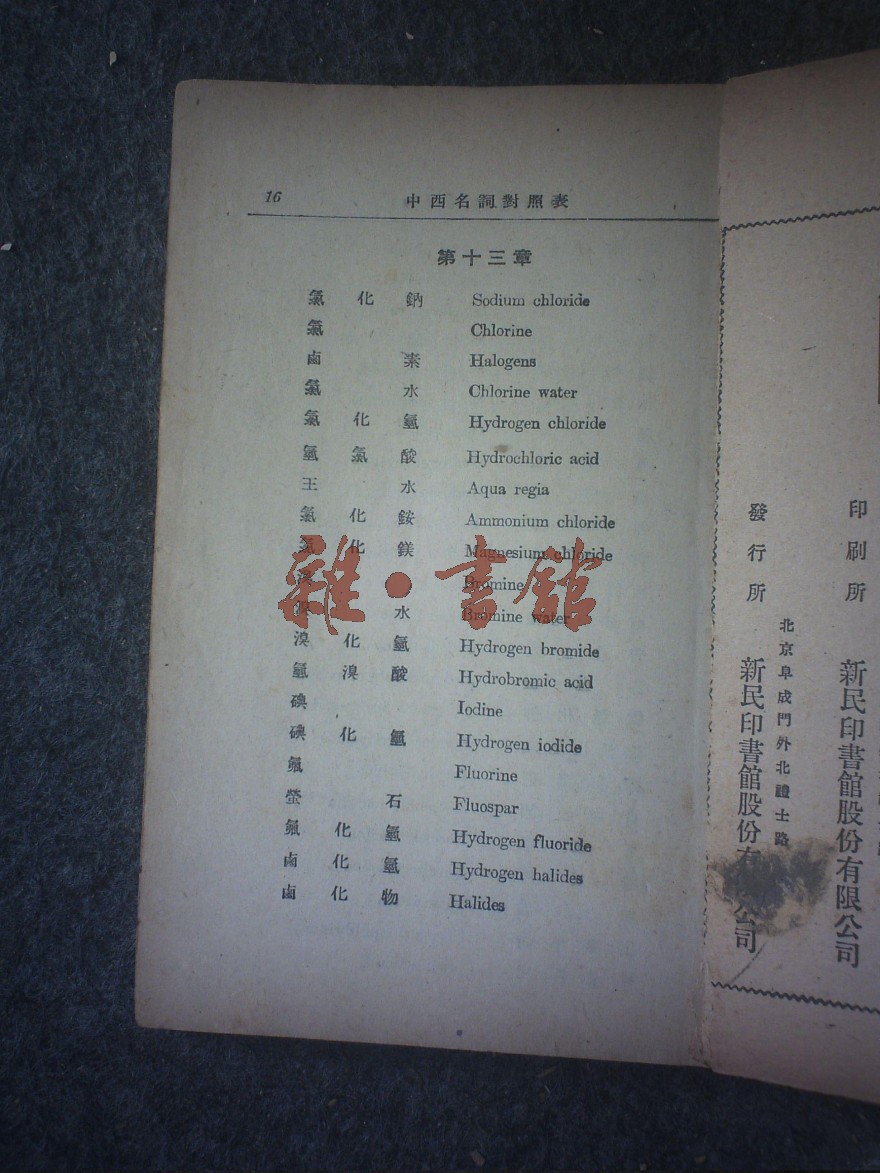 16 中西名詞對照表
第十三章
氯化鈉 Sodium chloride
氯 Chlorine
鹵素 Halogens
氯水 Chlorine water
氯化氫 Hydrogen chloride
氫氯酸 Hydrochloric acid
王水 Aqua regia
氯化銨 Ammonium chloride
氯化鎂 Magnesium chloride
溴 Bromine
溴水 Bromine water
溴化氫 Hydrogen bromide
氫溴酸 Hydrobromic acid
碘 Iodine
碘化氫 Hydrogen iodide
氟 Fluorine
螢石 Fluospar
氟化氫 Hydrogen fluoride
鹵化氫 Hydrogen halides
鹵化物 Halides
雜·書館
印刷所 新民印書館股份有限公司
北京阜成門外北禮士路
發行所 新民印書館股份有公司